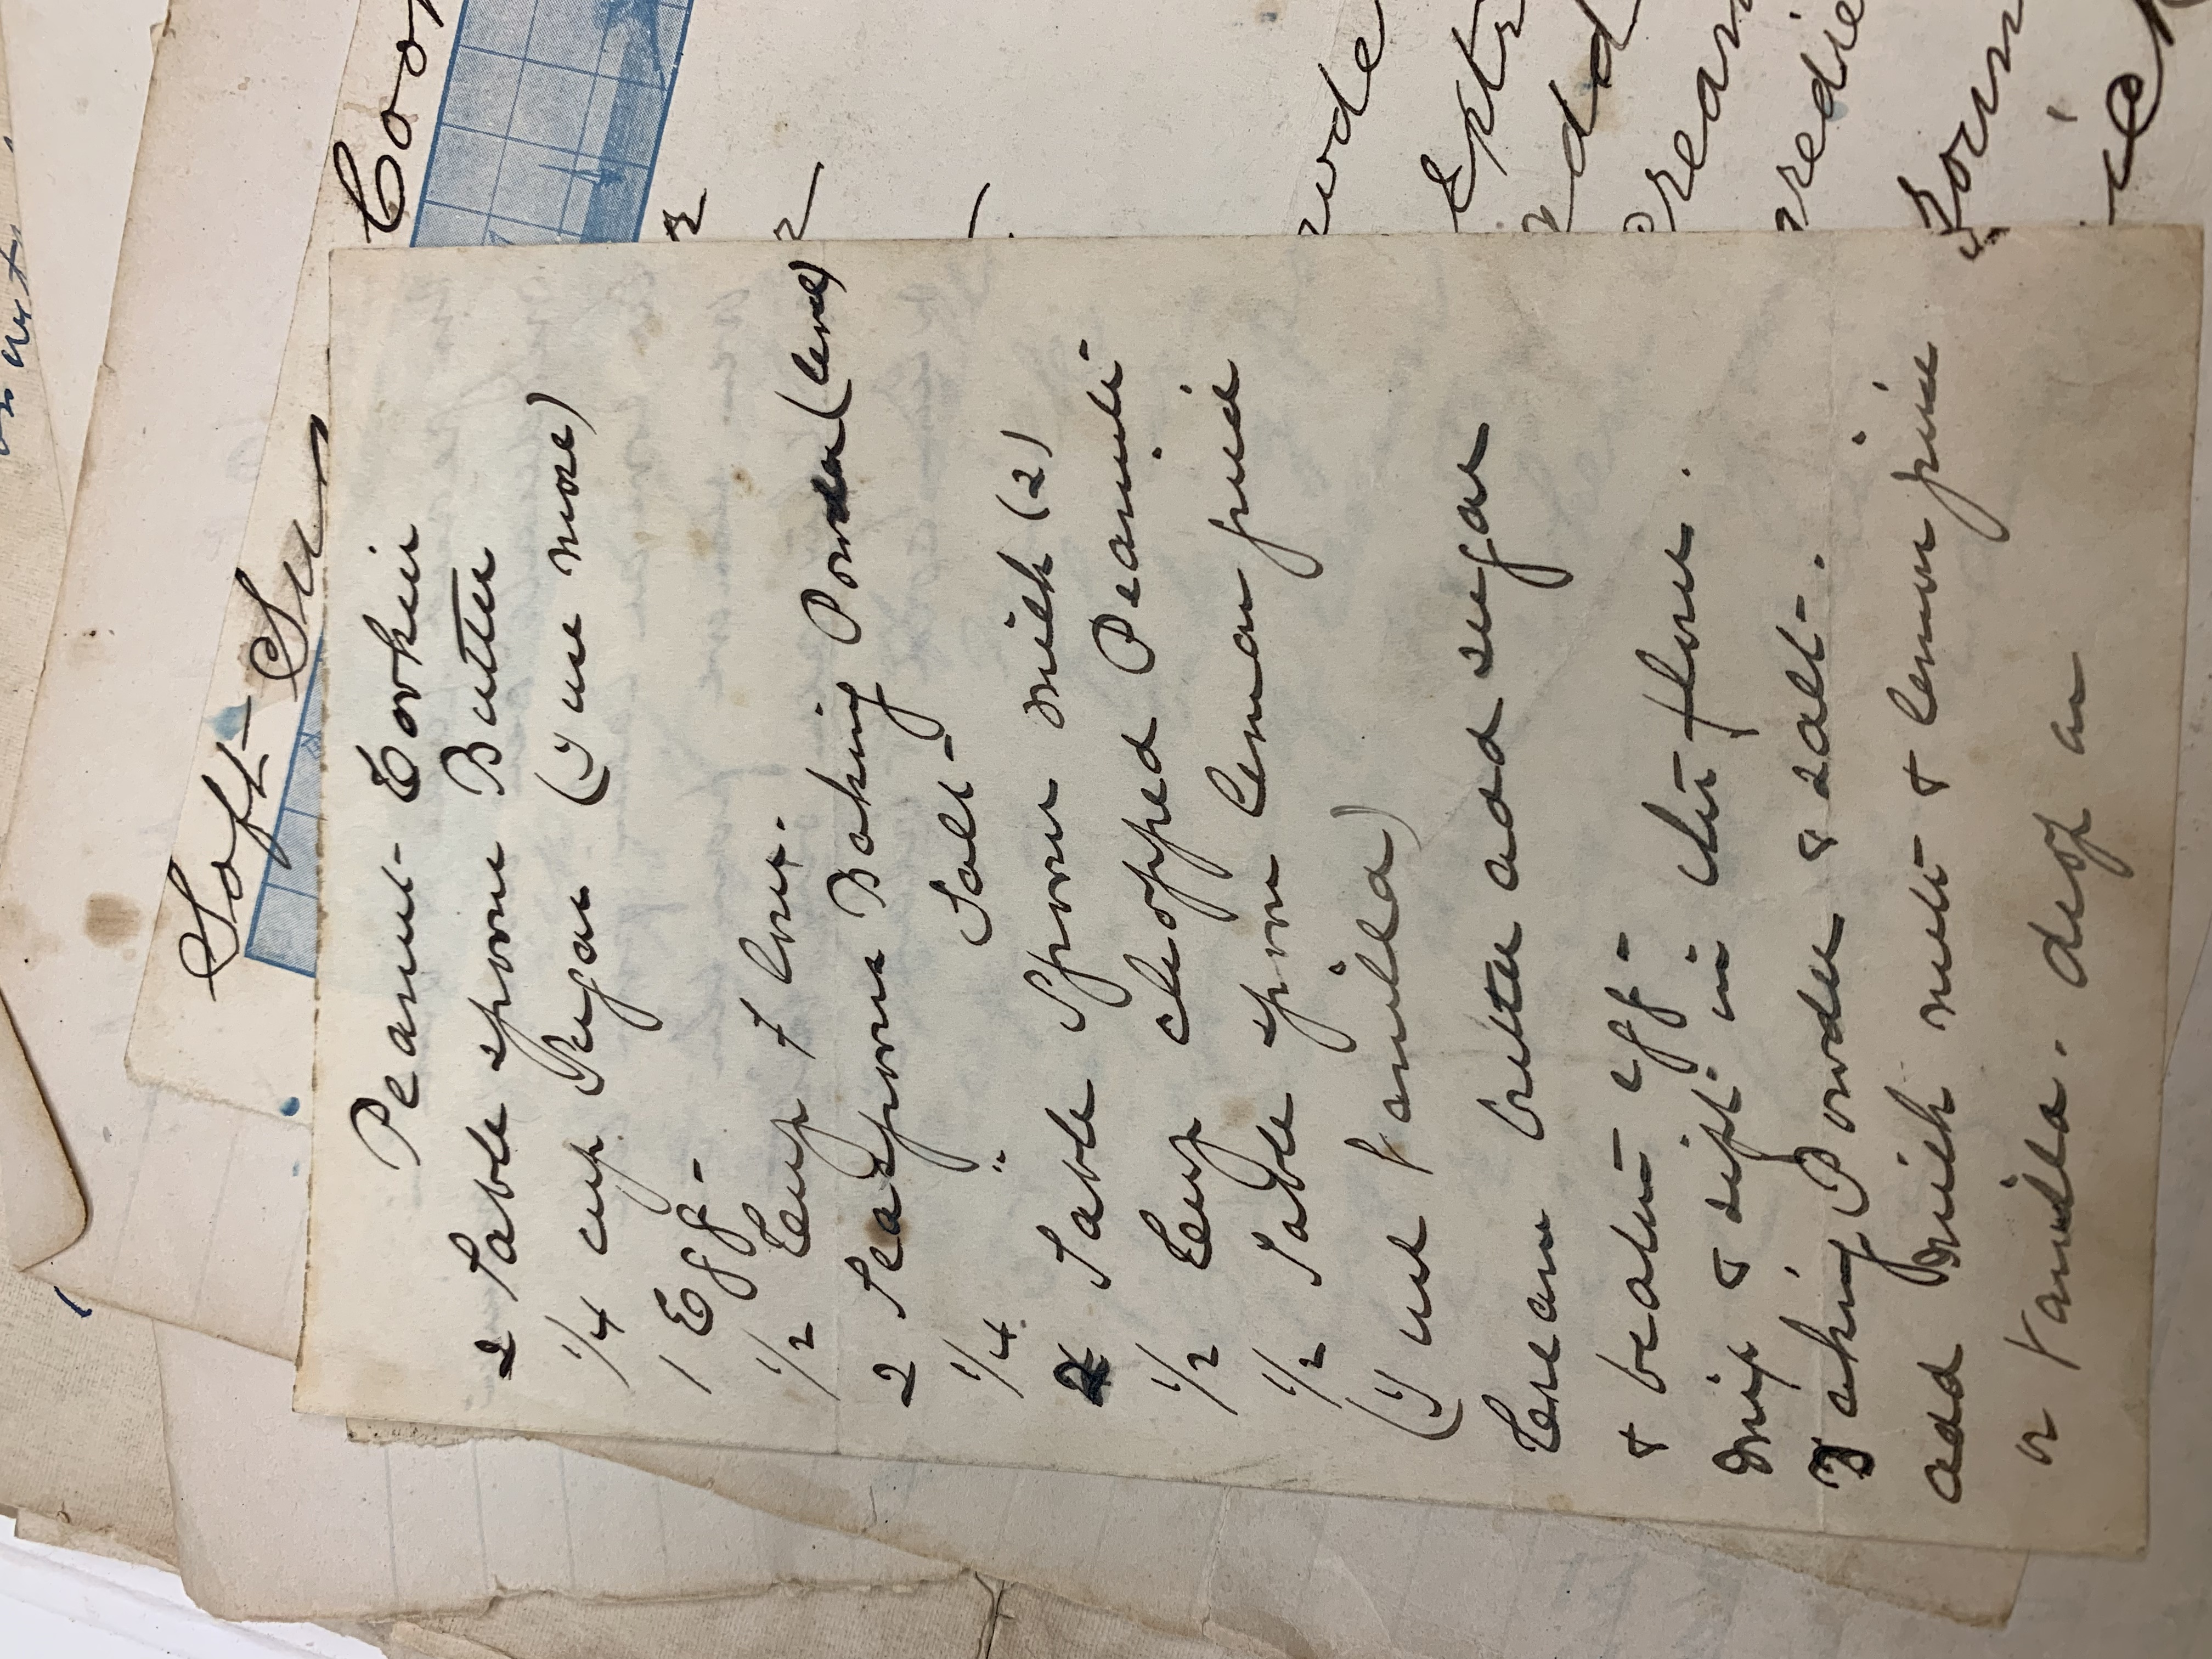 Soft Su
Coo
Peanut Cookies
2 Table spoons Butter
1/4 cup Sugar (I use more)
1 Egg -
1/2 Cup Flour.
2 Teaspoons Baking Powder (level)
1/4 " Salt -
2 Table Spoons milk (2)
1/2 Cup chopped Peanuts
1/2 Table spoon lemon juice
(I use Vanilla)
Cream butter add sugar
& beaten egg -
mix & sift in the flour.
Baking Powder & salt.
add milk nuts & lemon juice
or Vanilla. drop on
Extr
add
Cream
gredie